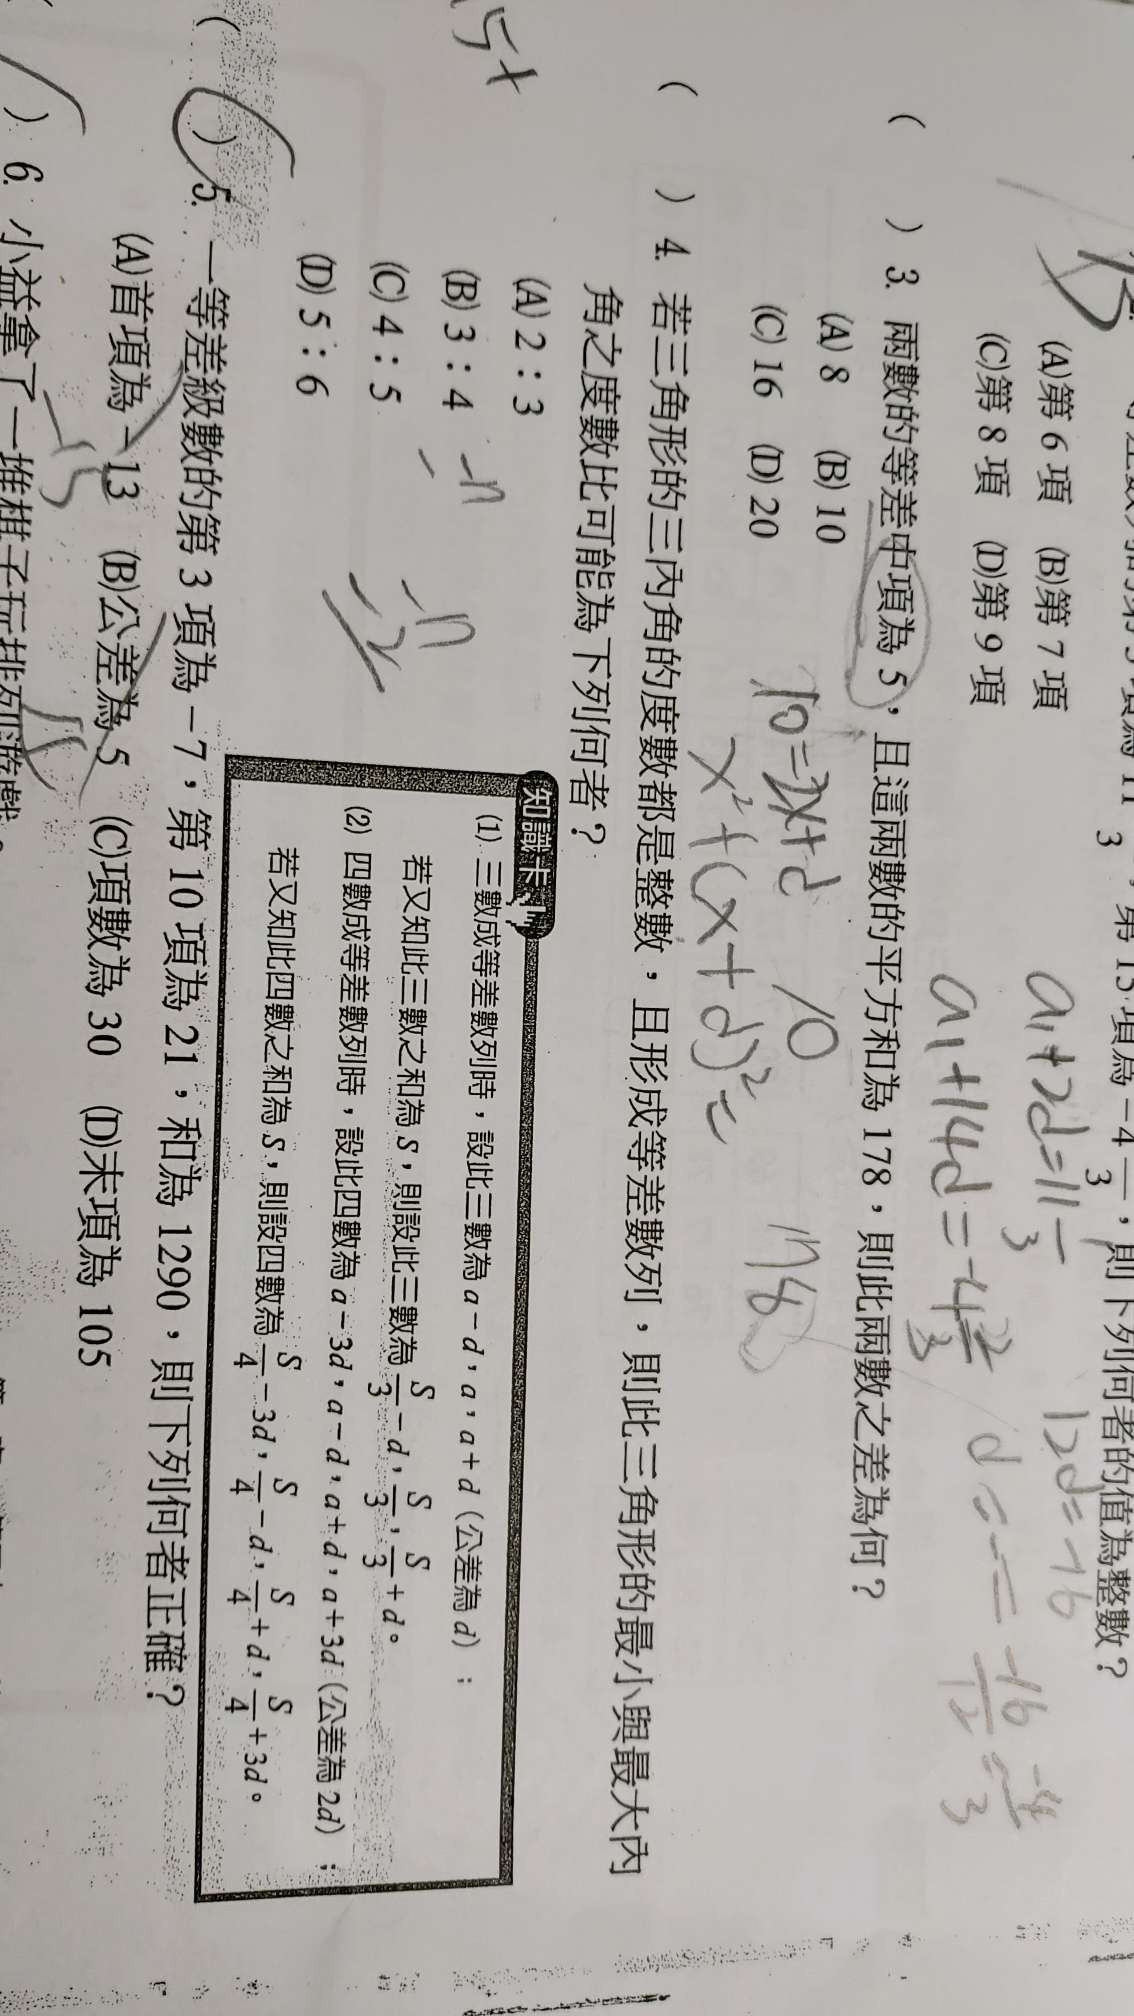 等差數列的第3項為11 1/3，第15項為-4 2/3，則下列何者的值為整數？
(A)第6項 (B)第7項
(C)第8項 (D)第9項
a₁+2d=11 1/3
12d=-16
a₁+14d=-4 2/3
d=-16/12=-4/3
( ) 3. 兩數的等差中項為5，且這兩數的平方和為178，則此兩數之差為何？
(A) 8 (B) 10
(C) 16 (D) 20
10=2x+d 10 178
x²+(x+d)²=
( ) 4. 若三角形的三內角的度數都是整數，且形成等差數列，則此三角形的最小與最大內
角之度數比可能為下列何者？
(A) 2：3
(B) 3：4
(C) 4：5
(D) 5：6
知識卡
(1) 三數成等差數列時，設此三數為a-d，a，a+d（公差為d）；
若又知此三數之和為S，則設此三數為S/3-d，S/3，S/3+d。
(2) 四數成等差數列時，設此四數為a-3d，a-d，a+d，a+3d（公差為2d）；
若又知此四數之和為S，則設四數為S/4-3d，S/4-d，S/4+d，S/4+3d。
( ) 5. 一等差級數的第3項為-7，第10項為21，和為1290，則下列何者正確？
(A)首項為-13 (B)公差為5 (C)項數為30 (D)末項為105
-15
( ) 6. 小益拿了一堆棋子玩排列遊戲。